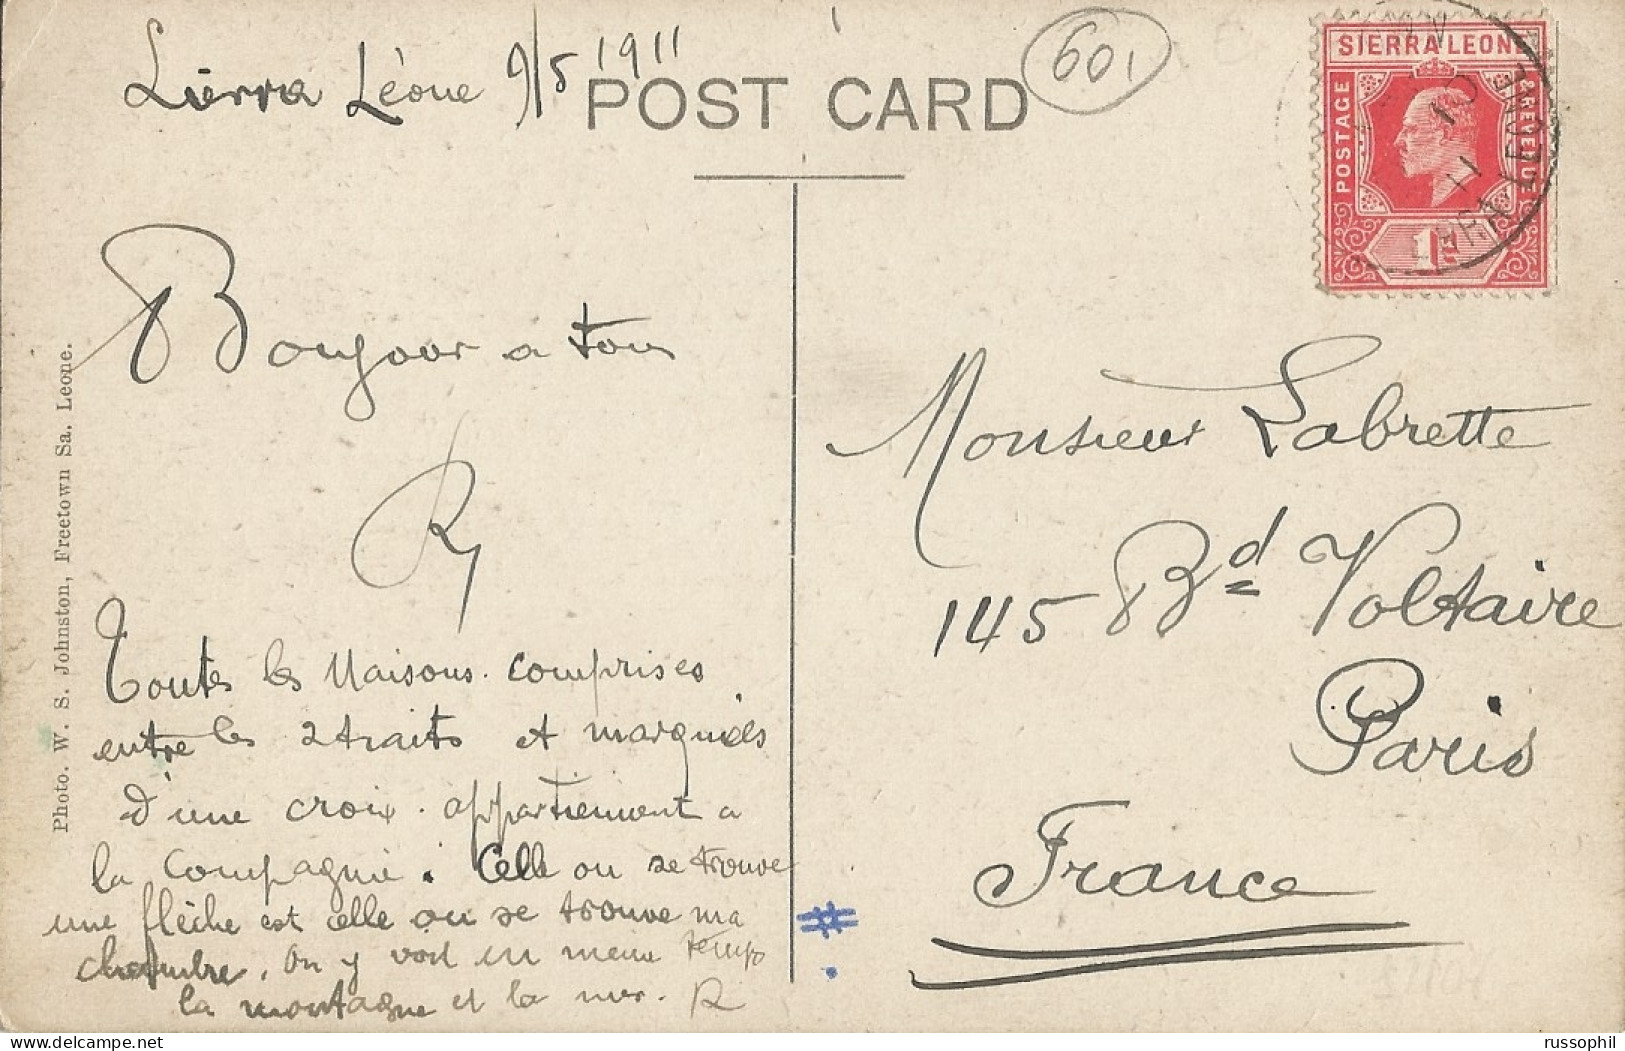 Sierra Léone 9/5 1911
POST CARD
601
SIERRA LEONE
POSTAGE
& REVENUE
1D
SIERRA LEONE
Bonjour a tous
R
Toutes les Maisons comprises
entre les 2 traits et marquées
d'une croix. appartiennent a
la compagnie. Celle ou se trouve
une flèche est celle ou se trouve ma
chambre. On y voit en meme temps
la montagne et la mer. R
Monsieur Labrette
145 Bd Voltaire
Paris
France
Photo. W. S. Johnston, Freetown Sa. Leone.
www.delcampe.net
russophil